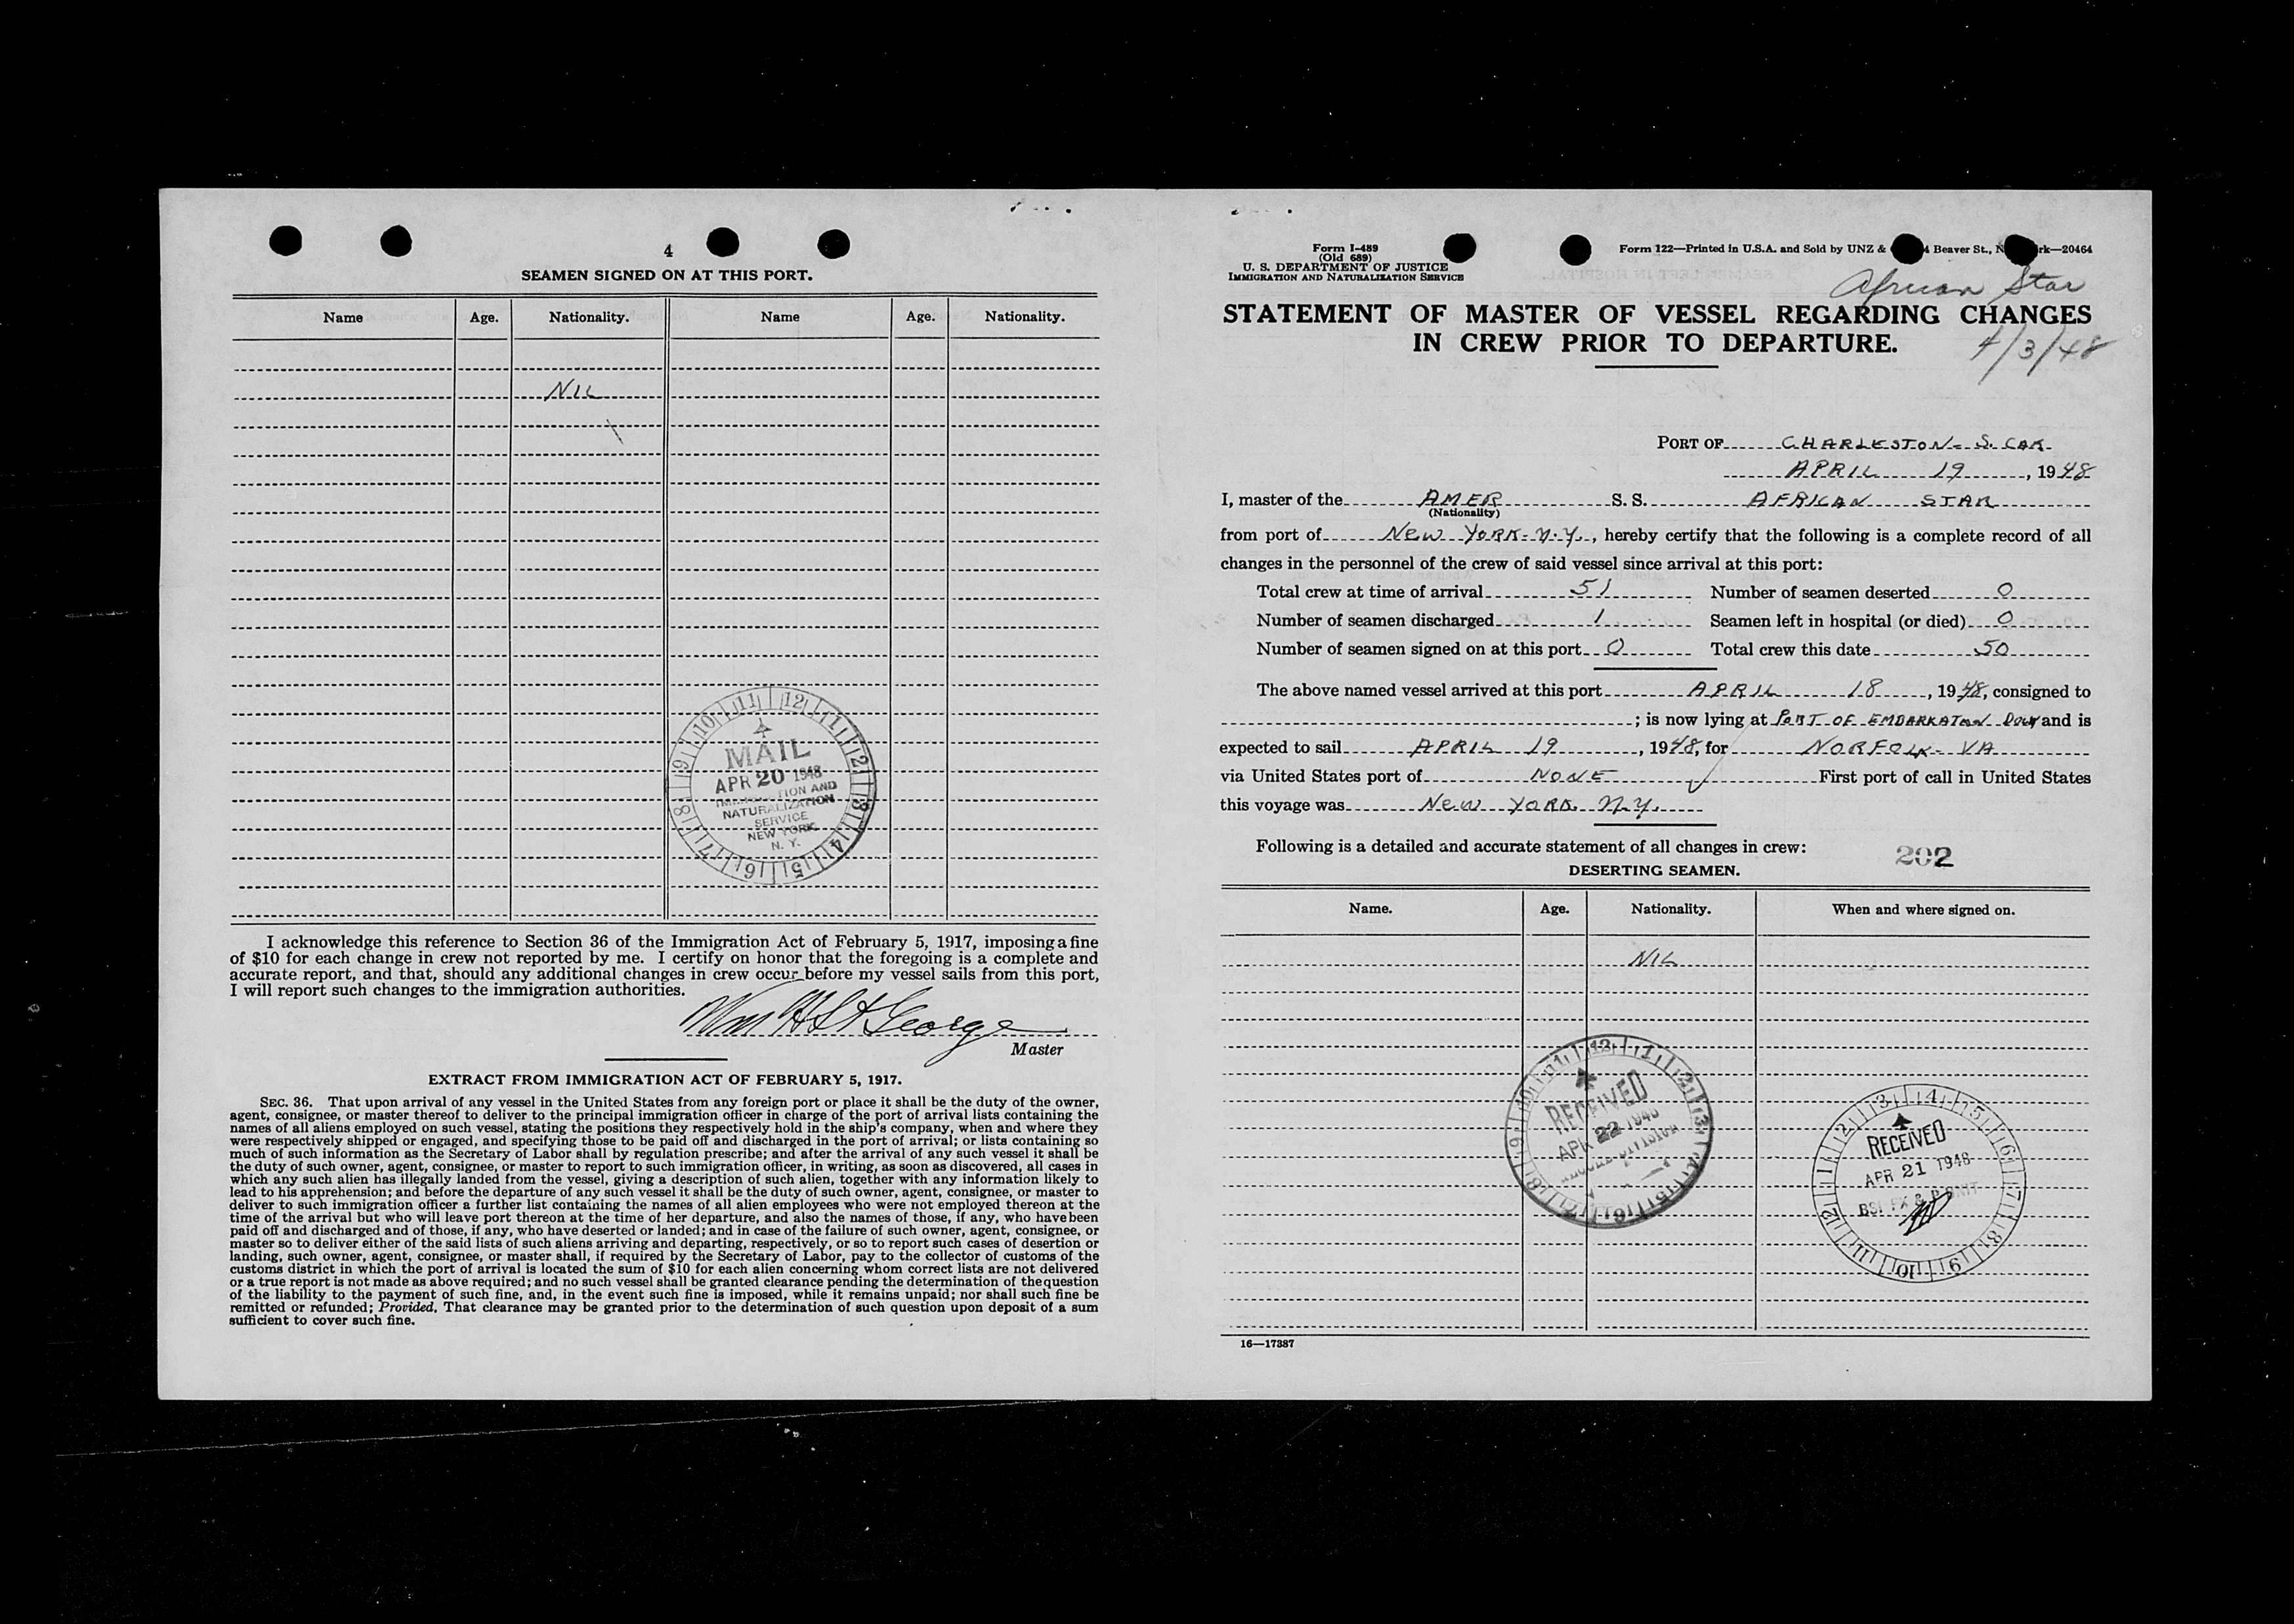 4
SEAMEN SIGNED ON AT THIS PORT.
Name Age. Nationality. Name Age. Nationality.
NIL
MAIL
APR 20 1948
IMMIGRATION AND
NATURALIZATION
SERVICE
NEW YORK
N. Y.
I acknowledge this reference to Section 36 of the Immigration Act of February 5, 1917, imposing a fine
of $10 for each change in crew not reported by me. I certify on honor that the foregoing is a complete and
accurate report, and that, should any additional changes in crew occur before my vessel sails from this port,
I will report such changes to the immigration authorities.
Wm H St George
Master
EXTRACT FROM IMMIGRATION ACT OF FEBRUARY 5, 1917.
SEC. 36. That upon arrival of any vessel in the United States from any foreign port or place it shall be the duty of the owner,
agent, consignee, or master thereof to deliver to the principal immigration officer in charge of the port of arrival lists containing the
names of all aliens employed on such vessel, stating the positions they respectively hold in the ship's company, when and where they
were respectively shipped or engaged, and specifying those to be paid off and discharged in the port of arrival; or lists containing so
much of such information as the Secretary of Labor shall by regulation prescribe; and after the arrival of any such vessel it shall be
the duty of such owner, agent, consignee, or master to report to such immigration officer, in writing, as soon as discovered, all cases in
which any such alien has illegally landed from the vessel, giving a description of such alien, together with any information likely to
lead to his apprehension; and before the departure of any such vessel it shall be the duty of such owner, agent, consignee, or master to
deliver to such immigration officer a further list containing the names of all alien employees who were not employed thereon at the
time of the arrival but who will leave port thereon at the time of her departure, and also the names of those, if any, who have been
paid off and discharged and of those, if any, who have deserted or landed; and in case of the failure of such owner, agent, consignee, or
master so to deliver either of the said lists of such aliens arriving and departing, respectively, or so to report such cases of desertion or
landing, such owner, agent, consignee, or master shall, if required by the Secretary of Labor, pay to the collector of customs of the
customs district in which the port of arrival is located the sum of $10 for each alien concerning whom correct lists are not delivered
or a true report is not made as above required; and no such vessel shall be granted clearance pending the determination of the question
of the liability to the payment of such fine, and, in the event such fine is imposed, while it remains unpaid; nor shall such fine be
remitted or refunded; Provided, That clearance may be granted prior to the determination of such question upon deposit of a sum
sufficient to cover such fine.
Form I-489
(Old 689)
U. S. DEPARTMENT OF JUSTICE
IMMIGRATION AND NATURALIZATION SERVICE
Form 122—Printed in U.S.A. and Sold by UNZ & Beaver St., rk—20464
African Star
STATEMENT OF MASTER OF VESSEL REGARDING CHANGES
IN CREW PRIOR TO DEPARTURE.
4/3/48
PORT OF CHARLESTON - S. CAR.
APRIL 19, 1948
I, master of the AMER S. S. AFRICAN STAR
(Nationality)
from port of NEW YORK - N.Y., hereby certify that the following is a complete record of all
changes in the personnel of the crew of said vessel since arrival at this port:
Total crew at time of arrival 51 Number of seamen deserted 0
Number of seamen discharged 1 Seamen left in hospital (or died) 0
Number of seamen signed on at this port 0 Total crew this date 50
The above named vessel arrived at this port APRIL 18, 1948, consigned to
; is now lying at PORT OF EMBARKATION and is
expected to sail APRIL 19, 1948, for NORFOLK - VA
via United States port of NONE First port of call in United States
this voyage was NEW YORK N.Y.
Following is a detailed and accurate statement of all changes in crew:
202
DESERTING SEAMEN.
Name. Age. Nationality. When and where signed on.
NIL
RECEIVED
APR 22 1948
RECEIVED
APR 21 1948
16—17387